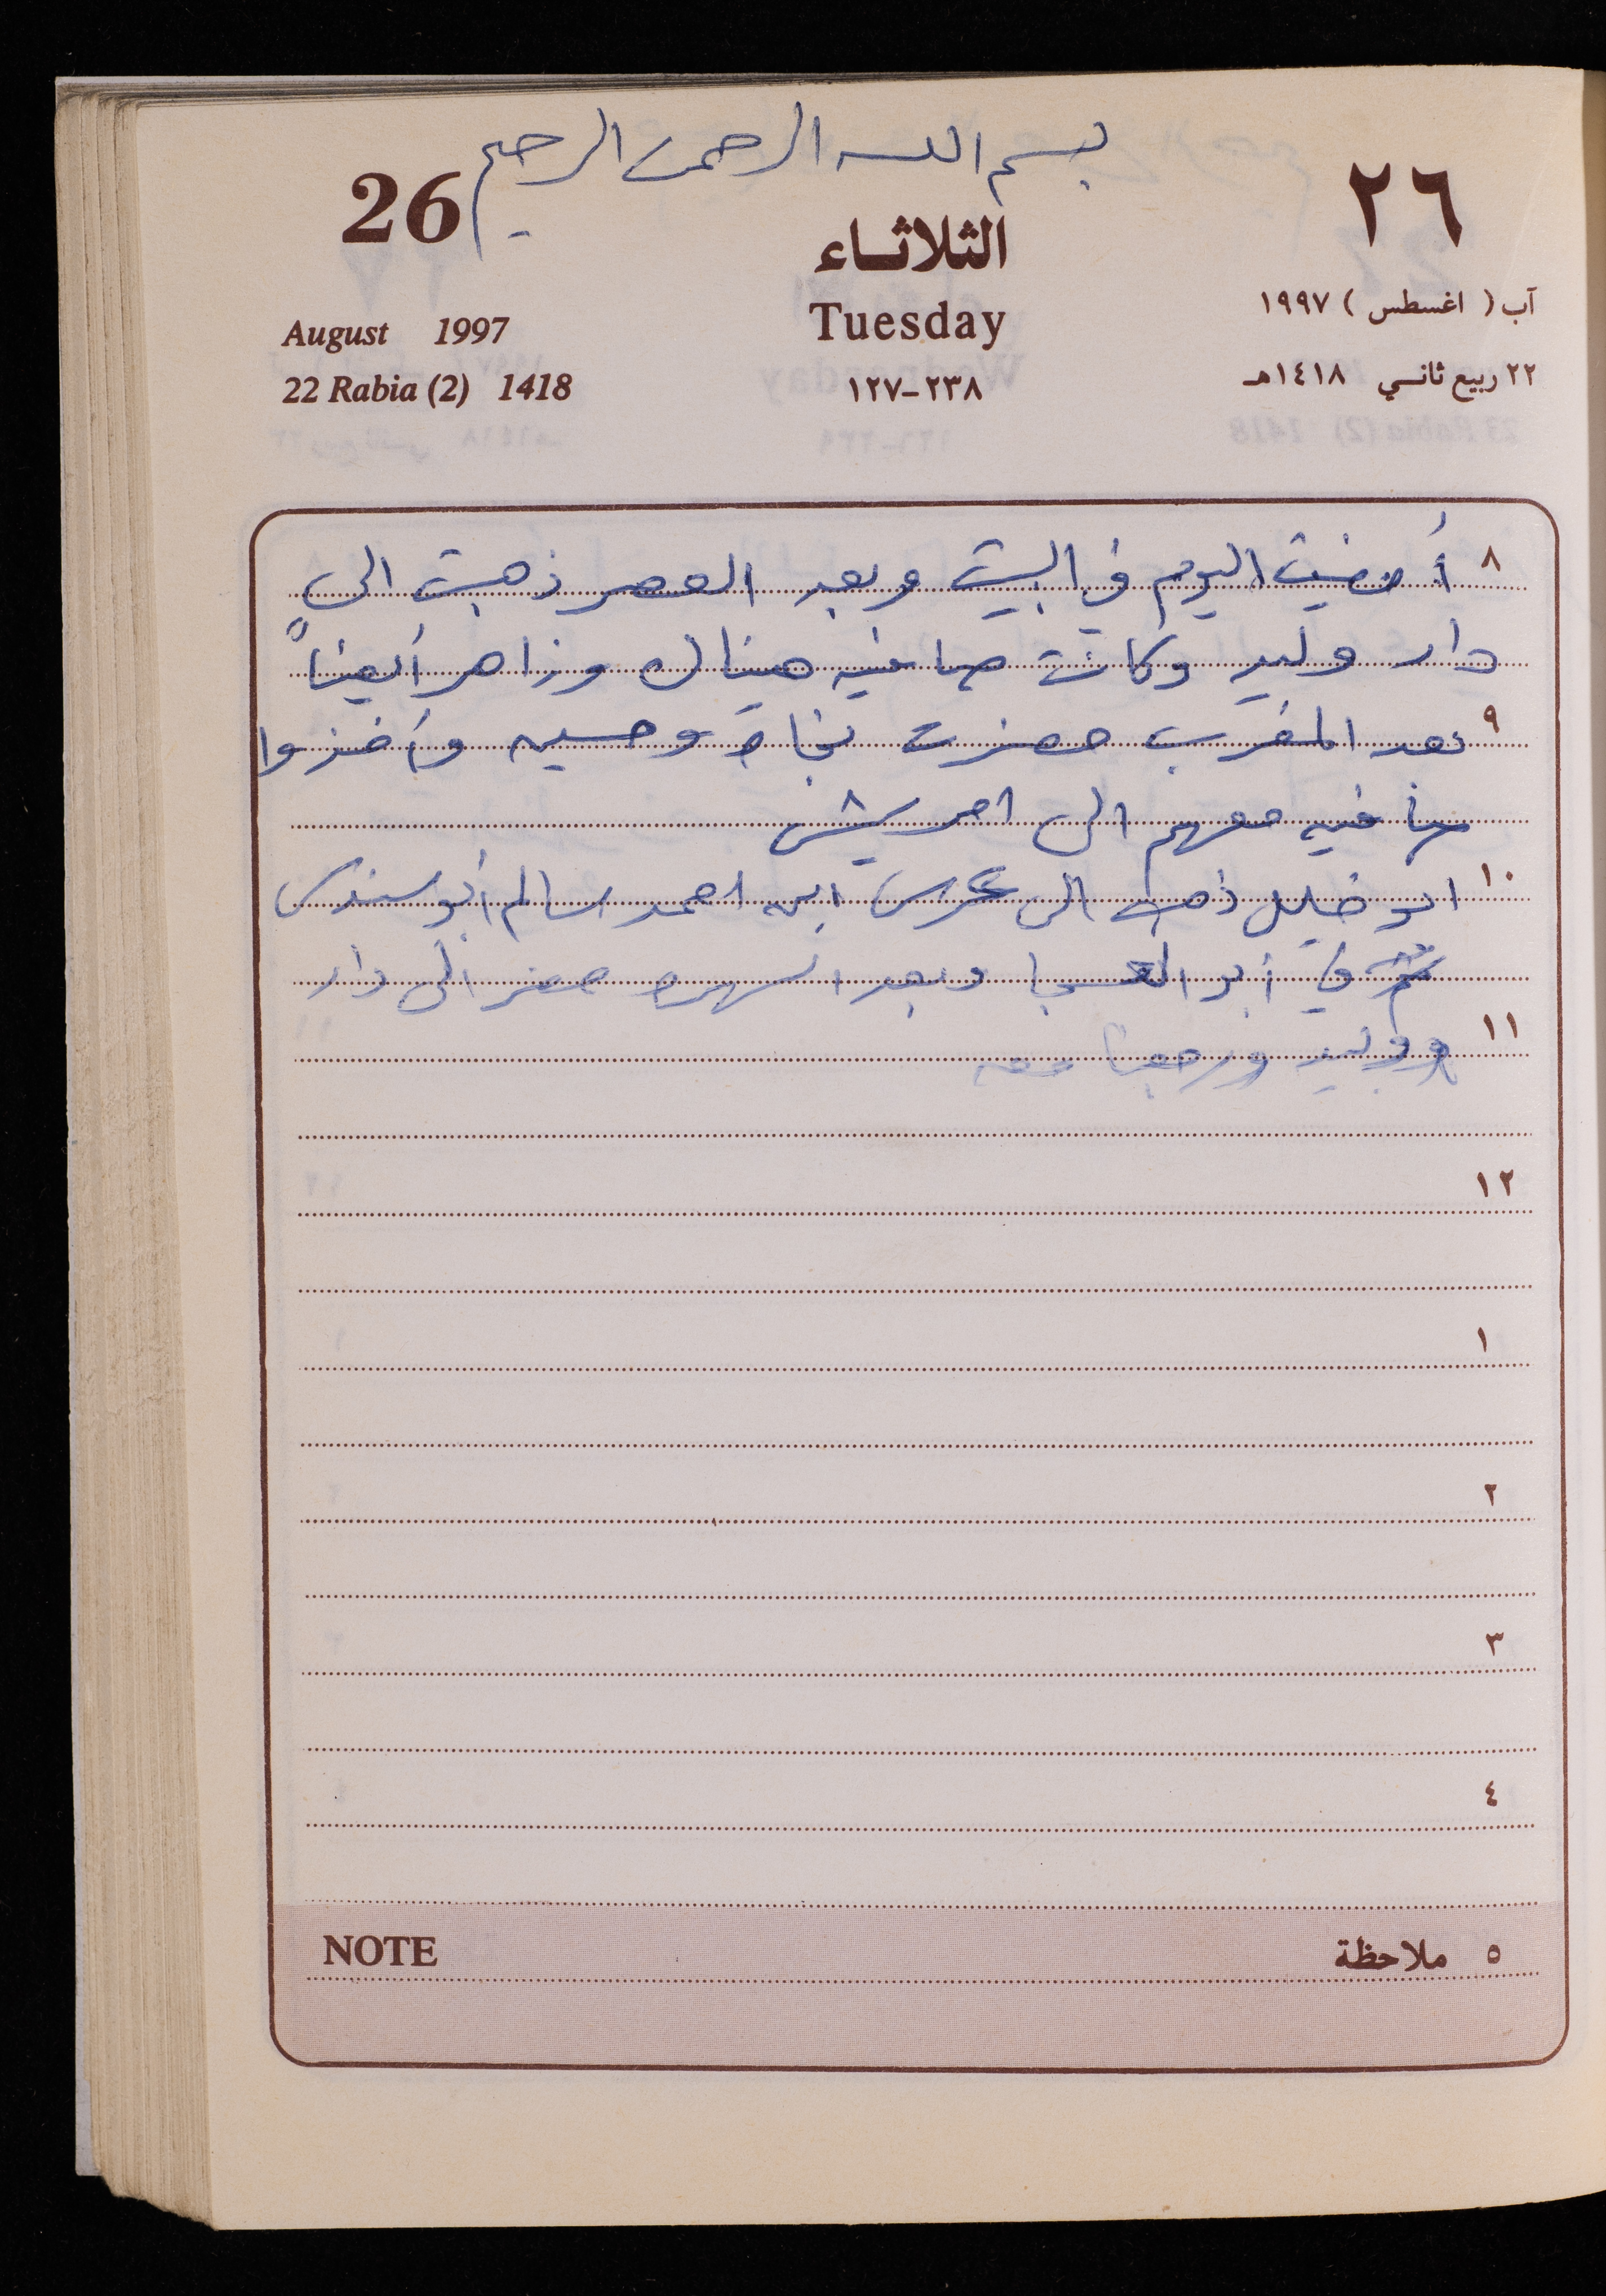 بسم الله الرحمن الرحيم
26
٢٦
الثلاثاء
Tuesday
٢٣٨-١٢٧
August 1997
22 Rabia (2) 1418
آب ( اغسطس ) ١٩٩٧
٢٢ ربيع ثاني ١٤١٨هـ
٨ أمضيت اليوم في البيت وبعد العصر ذهبت الى
دار وليد وكانت صافيه هناك وزاهر أيضاً
٩ بعد المغرب حضرت نجاة وحسين وأخذوا
صافيه معهم الى
١٠ ابو خليل ذهب الى عرس ابن احمد سالم ابو سندس
في أبو وبعد السهره حضر الى دار
١١ وليد ورجعنا معه
١٢
١
٢
٣
٤
٥ ملاحظة
NOTE